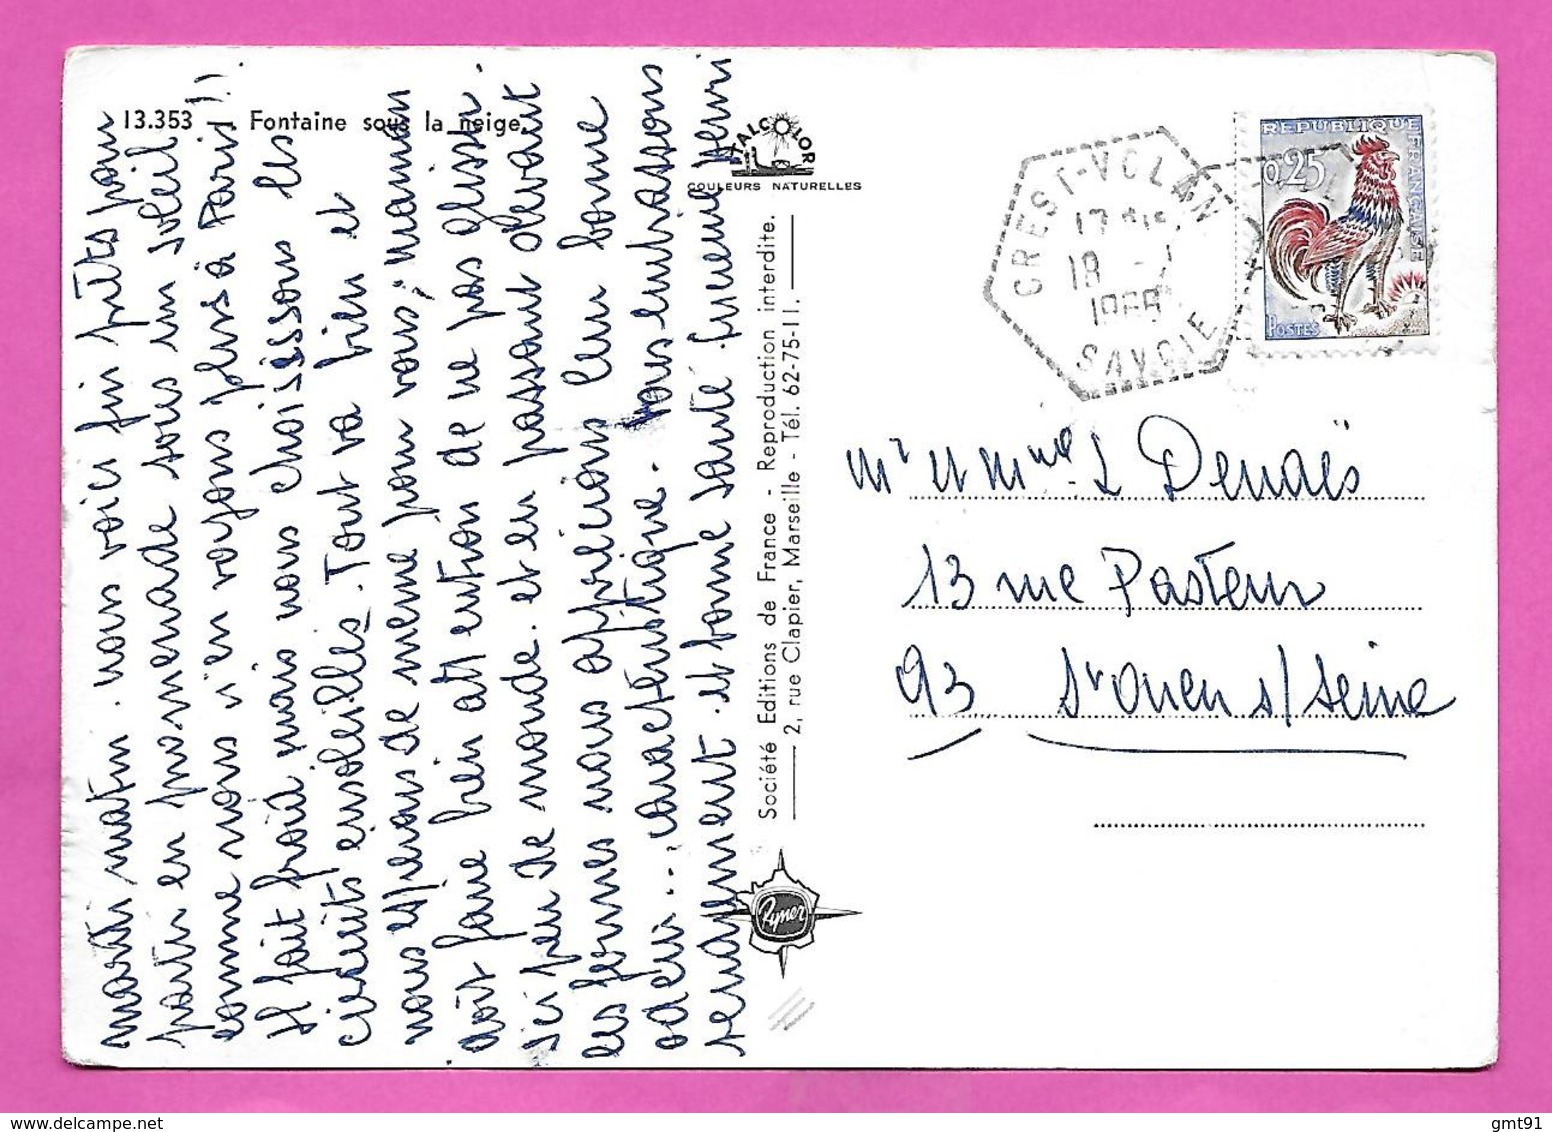 13.353 Fontaine sous la neige.
ITALCOLOR
COULEURS NATURELLES
Société Editions de France - Reproduction interdite.
2, rue Clapier, Marseille - Tél. 62-75-11.
Rymer
CREST-VOLAN
18
SAVOIE
REPUBLIQUE FRANÇAISE
0,25
POSTES
mardi matin. nous voici fin prêts pour
partir en promenade sous un soleil
comme nous n'en voyons plus à Paris!!
Il fait froid mais nous choisissons les
circuits ensoleillés. Tout va bien et
nous espérons de même pour vous; maman
doit faire bien attention de ne pas glisser.
ici peu de monde. et en passant devant
les fermes nous apprécions leur bonne
odeur... caractéristique. vous embrassons
et bonne santé
Mr et Mme L Denaës
13 rue Pasteur
93 St Ouen s/Seine
gmt91